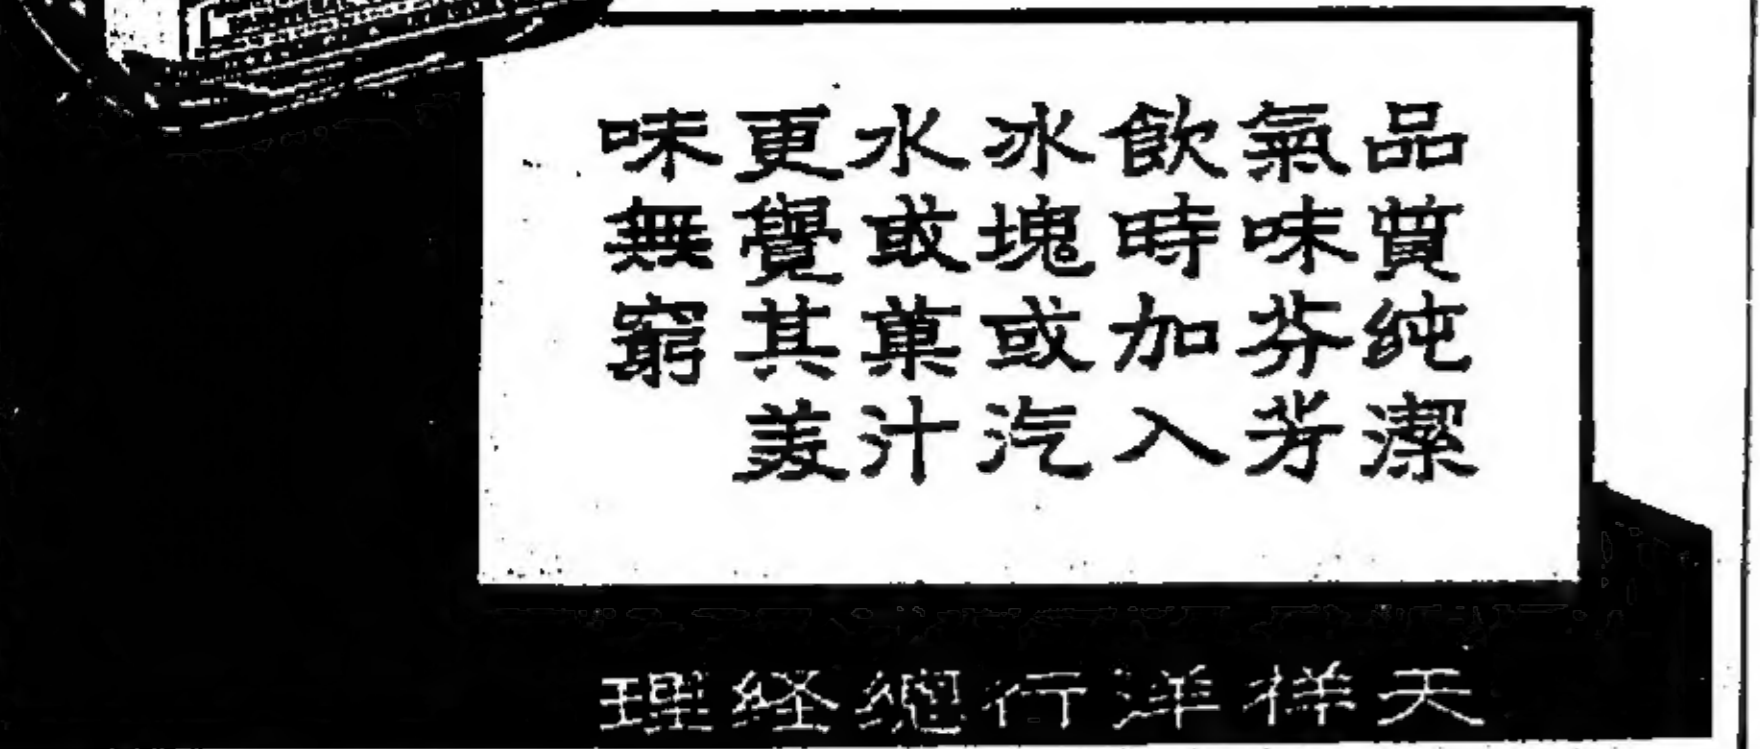 品質純潔
氣味芬芳
飲時加入
冰塊或汽
水或菓汁
更覺其美
味無窮
天祥洋行總経理